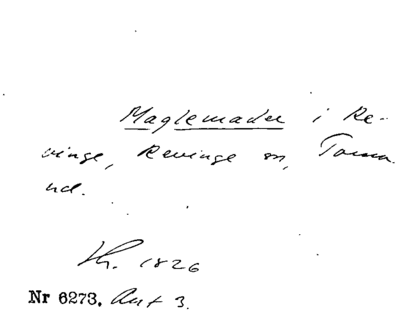 Maglemader i Re-
vinge, Revinge sn, Torna
hd.
Kr. 1826
Nr 6273, Akt 3.